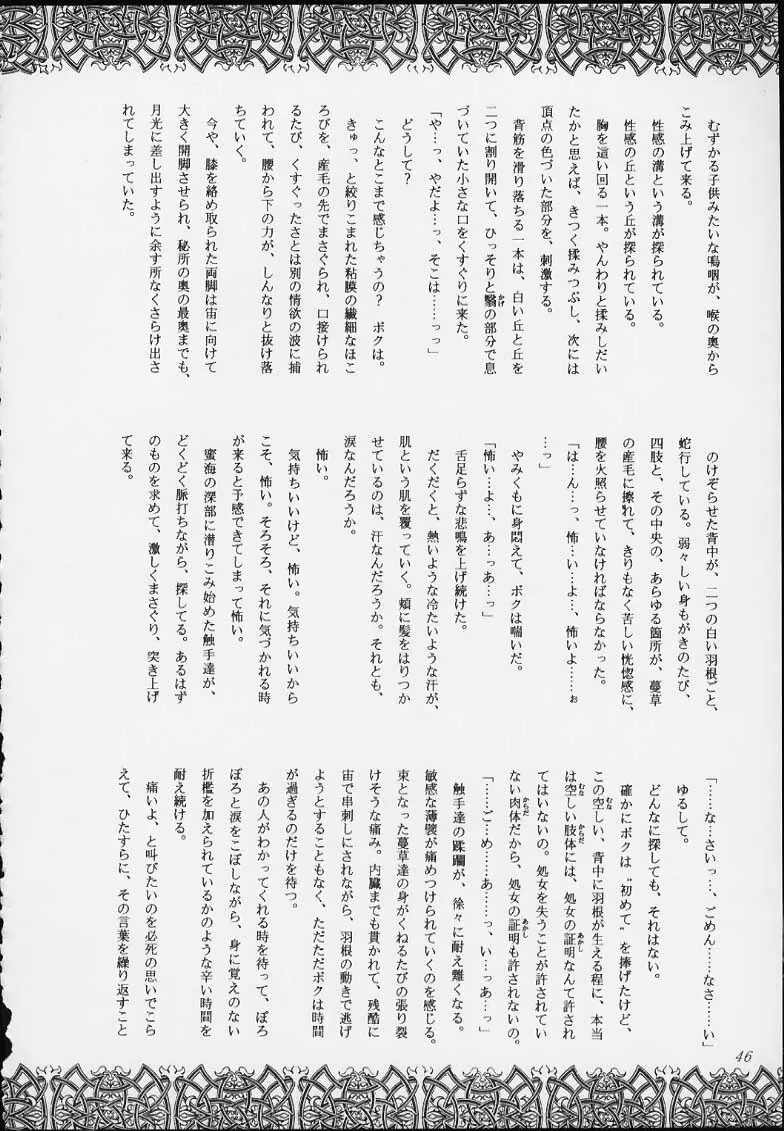 むずかる子供みたいな嗚咽が、喉の奥から
こみ上げて来る。
性感の溝という溝が探られている。
性感の丘という丘が探られている。
胸を這い回る一本。やんわりと揉みしだい
たかと思えば、きつく揉みつぶし、次には
頂点の色づいた部分を、刺激する。
背筋を滑り落ちる一本は、白い丘と丘を
二つに割り開いて、ひっそりと翳の部分で息
づいていた小さな口をくすぐりに来た。
「や…っ、やだよ…っ、そこは……っっ」
どうして?
こんなとこまで感じちゃうの? ボクは。
きゅっ、と絞りこまれた粘膜の繊細なほこ
ろびを、産毛の先でまさぐられ、口接けられ
るたび、くすぐったさとは別の情欲の波に捕
われて、腰から下の力が、しんなりと抜け落
ちていく。
今や、膝を絡め取られた両脚は宙に向けて
大きく開脚させられ、秘所の奥の最奥までも、
月光に差し出すように余す所なくさらけ出さ
れてしまっていた。
のけぞらせた背中が、二つの白い羽根ごと、
蛇行している。弱々しい身もがきのたび、
四肢と、その中央の、あらゆる箇所が、蔓草
の産毛に擦れて、きりもなく苦しい恍惚感に、
腰を火照らせていなければならなかった。
「は…ん…っ、怖…い…よ…、怖いよ……ぉ
…っ」
やみくもに身悶えて、ボクは喘いだ。
「怖い…よ…、あ…っあ…っ」
舌足らずな悲鳴を上げ続けた。
だくだくと、熱いような冷たいような汗が、
肌という肌を覆っていく。頬に髪をはりつか
せているのは、汗なんだろうか。それとも、
涙なんだろうか。
怖い。
気持ちいいけど、怖い。気持ちいいから
こそ、怖い。そろそろ、それに気づかれる時
が来ると予感できてしまって怖い。
蜜海の深部に潜りこみ始めた触手達が、
どくどく脈打ちながら、探してる。あるはず
のものを求めて、激しくまさぐり、突き上げ
て来る。
「……な…さい…っ…、ごめん……なさ……い」
ゆるして。
どんなに探しても、それはない。
確かにボクは〝初めて〟を捧げたけど、
この空しい、背中に羽根が生える程に、本当
は空しい肢体には、処女の証明なんて許され
てはいないの。処女を失うことが許されてい
ない肉体だから、処女の証明も許されないの。
「……ご…め……あ……っ、い…っあ…っ」
触手達の蹂躙が、徐々に耐え難くなる。
敏感な薄襞が痛めつけられていくのを感じる。
束となった蔓草達の身がくねるたびの張り裂
けそうな痛み。内臓までも貫かれて、残酷に
宙で串刺しにされながら、羽根の動きで逃げ
ようとすることもなく、ただただボクは時間
が過ぎるのだけを待つ。
あの人がわかってくれる時を待って、ぽろ
ぽろと涙をこぼしながら、身に覚えのない
折檻を加えられているかのような辛い時間を
耐え続ける。
痛いよ、と叫びたいのを必死の思いでこら
えて、ひたすらに、その言葉を繰り返すこと
46